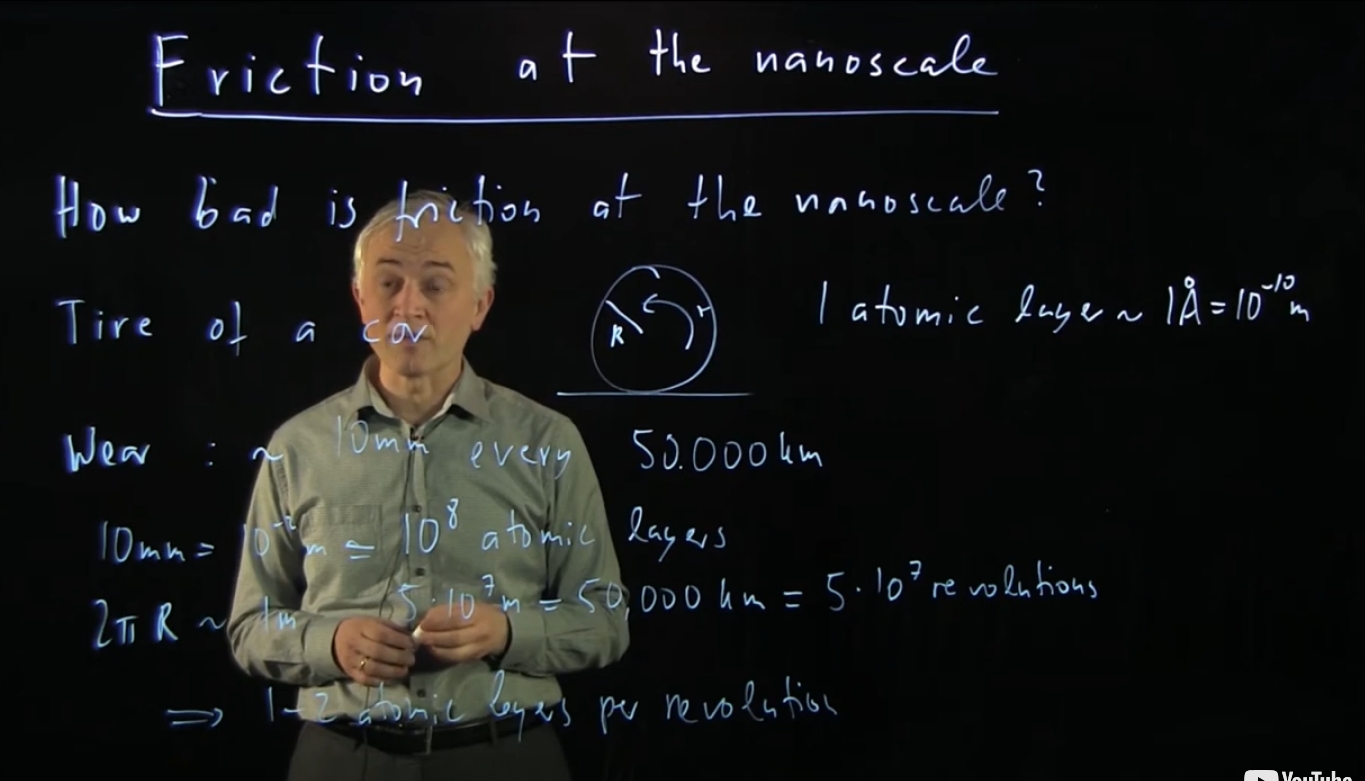 Friction at the nanoscale
How bad is friction at the nanoscale?
Tire of a car
R
1 atomic layer ~ 1Å = 10⁻¹⁰ m
Wear : ~ 10mm every 50.000 km
10mm = 10⁻² m ≃ 10⁸ atomic layers
2π R ~ 1m 5·10⁷ m = 50,000 km = 5·10⁷ revolutions
⇒ 1-2 atomic layers per revolution
YouTube